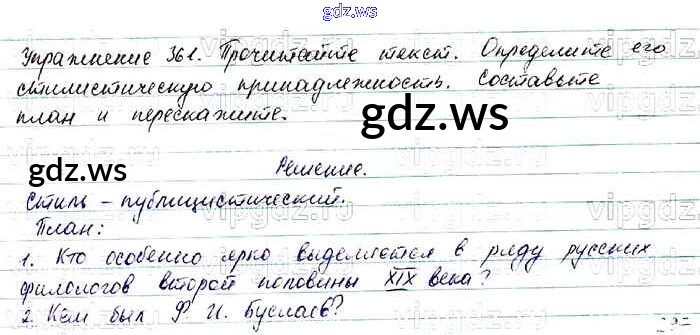 gdz.ws
Упражнение 361. Прочитайте текст. Определите его
стилистическую принадлежность. Составьте
план и перескажите.
gdz.ws
gdz.ws
Решение.
Стиль – публицистический.
План:
1. Кто особенно ярко выделяется в ряду русских
филологов второй половины XIX века?
2. Кем был Ф. И. Буслаев?
gdz.ws